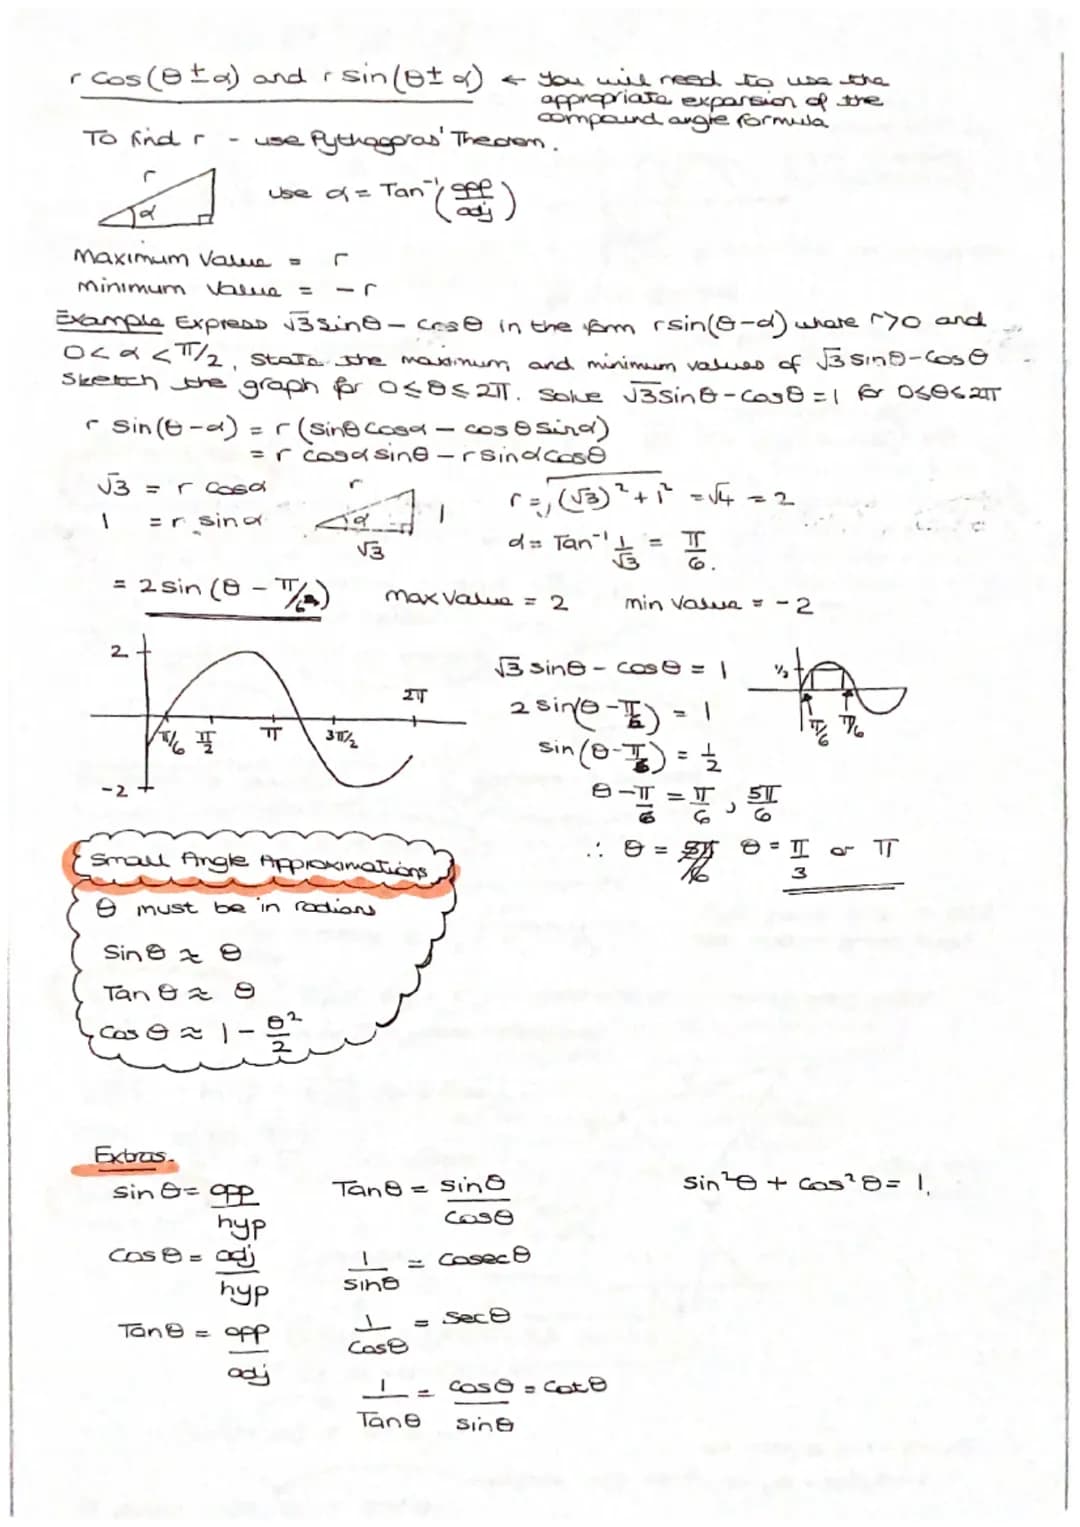 r cos(θ ± α) and r sin(θ ± α) ← You will need to use the
appropriate expansion of the
compound angle formula
To find r - use Pythagoras' Theorem.
r
α
use α = Tan⁻¹(opp/adj)
Maximum Value = r
minimum Value = -r
Example Express √3 sinθ - cosθ in the form r sin(θ-α) where r>0 and
0<α<π/2, State the maximum and minimum values of √3 sinθ - cosθ
Sketch the graph for 0≤θ≤2π. Solve √3 sinθ - cosθ = 1 for 0≤θ≤2π
r sin(θ-α) = r (sinθ cosα - cosθ sinα)
= r cosα sinθ - r sinα cosθ
√3 = r cosα
1 = r sinα
r
α
1
√3
r = √((√3)² + 1²) = √4 = 2
α = Tan⁻¹ 1/√3 = π/6.
= 2 sin (θ - π/6)
max Value = 2
min Value = -2
2
-2
π/6
π/2
π
3π/2
2π
√3 sinθ - cosθ = 1
2 sin(θ - π/6) = 1
sin(θ - π/6) = 1/2
θ - π/6 = π/6, 5π/6
∴ θ = θ = π/3 or π
1/2
π/6
Small Angle Approximations
θ must be in radians
Sinθ ≈ θ
Tanθ ≈ θ
Cosθ ≈ 1 - θ²/2
Extras.
sinθ = opp/hyp
cosθ = adj/hyp
Tanθ = opp/adj
Tanθ = sinθ/cosθ
1/sinθ = cosecθ
1/cosθ = secθ
1/Tanθ = cosθ/sinθ = cotθ
sin²θ + cos²θ = 1.